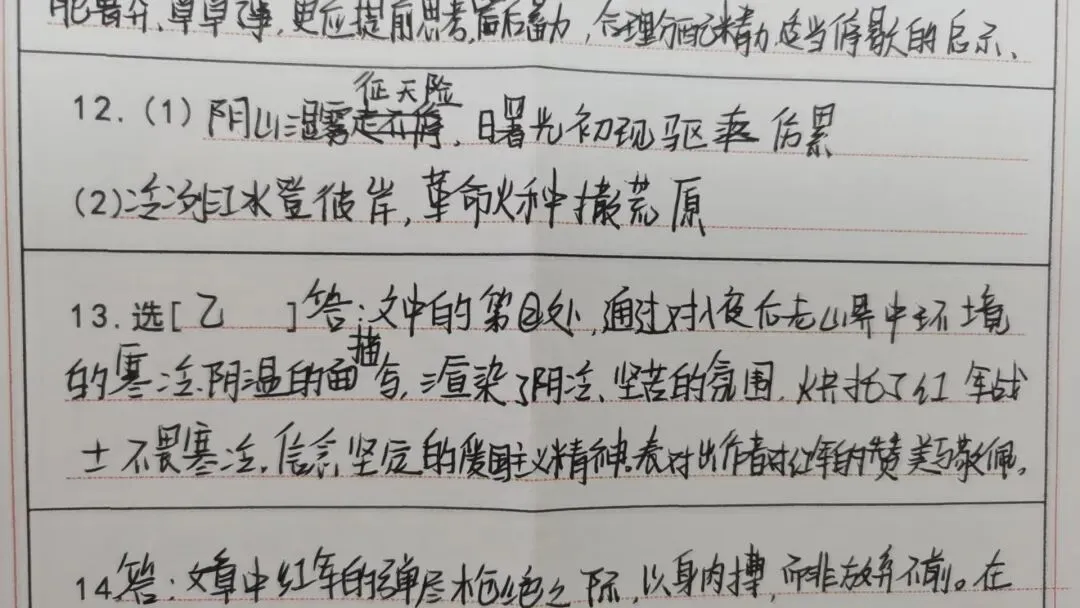 草草了事,更应提前思考,合理分配精力,适当停歇的启示、
征天险
12.(1)阴山湿雾走不停,曙光初现驱疲伤累
(2)冷冽江水登彼岸,革命火种撒荒原
13.选[乙 ]答:文中的第②处,通过对入夜后老山界中环境
描
的寒冷、阴温的面写,渲染了阴冷、坚苦的氛围,烘托了红军战
士不畏寒冷,信念坚定的爱国主义精神。表对出作者对红军的赞美与敬佩。
14.答:文章中红军的弹尽枪绝之际,以身肉搏,而非放弃不前。在